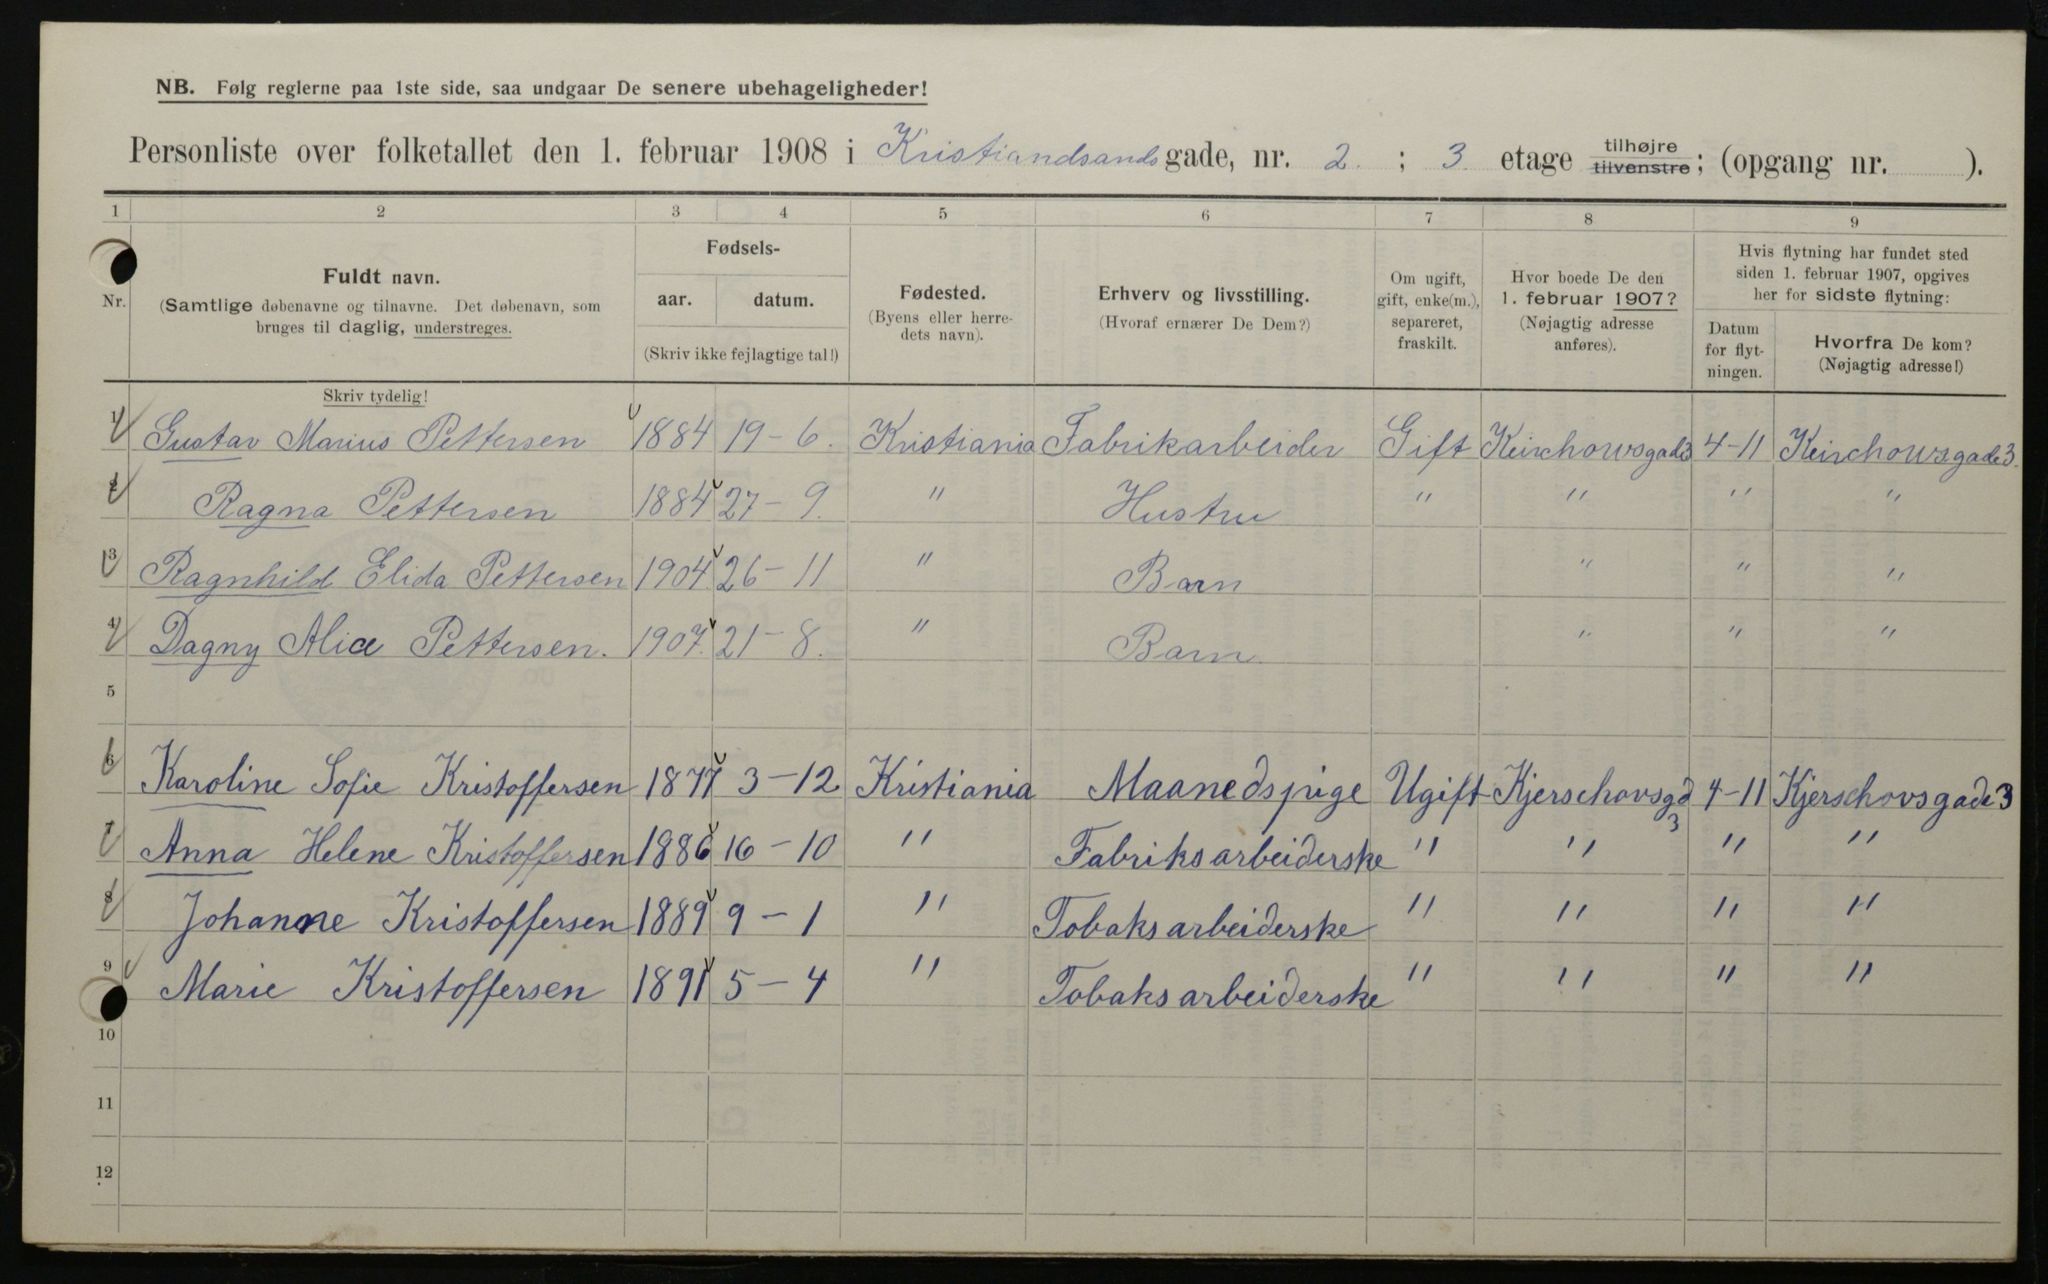 NB. Følg reglerne paa 1ste side, saa undgaar De senere ubehageligheder!
Personliste over folketallet den 1. februar 1908 i Kristiandsandsgade, nr. 2. ; 3. etage tilhøjre tilvenstre; (opgang nr. ).
1 2 3 4 5 6 7 8 9
Nr.
Fuldt navn.
(Samtlige døbenavne og tilnavne. Det døbenavn, som
bruges til daglig, understreges.
Skriv tydelig!
Fødsels-
aar. datum.
(Skriv ikke fejlagtige tal!)
Fødested.
(Byens eller herre-
dets navn).
Erhverv og livsstilling.
(Hvoraf ernærer De Dem?)
Om ugift,
gift, enke(m.),
separeret,
fraskilt.
Hvor boede De den
1. februar 1907?
(Nøjagtig adresse
anføres).
Hvis flytning har fundet sted
siden 1. februar 1907, opgives
her for sidste flytning:
Datum
for flyt-
ningen.
Hvorfra De kom?
(Nøjagtig adresse!)
1 Gustav Marius Pettersen 1884 19-6. Kristiania Fabrikarbeider Gift Keirchowsgade3 4-11 Keirchowsgade3.
2 Ragna Pettersen 1884 27-9. " Hustru " " " "
3 Ragnhild Elida Pettersen 1904 26-11 " Barn " " "
4 Dagny Alice Pettersen. 1907. 21-8. " Barn. " " "
5
6 Karoline Sofie Kristoffersen 1877 3-12 Kristiania Maanedspige Ugift Kjerschovsgd 3 4-11 Kjerschovsgade 3
7 Anna Helene Kristoffersen 1886 16-10 " Fabriksarbeiderske " " " "
8 Johanne Kristoffersen 1889 9-1 " Tobaksarbeiderske " " " "
9 Marie Kristoffersen 1891 5-4 " Tobaksarbeiderske " " " "
10
11
12